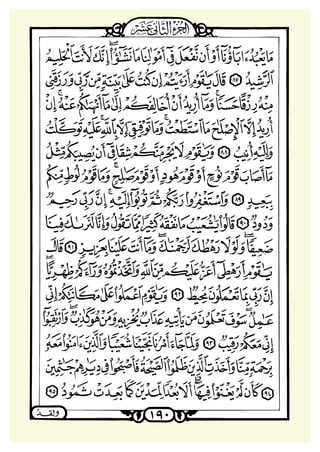 الجزء الثاني عشر
مَا يَعْبُدُ ءَابَآؤُنَآ أَوْ أَن نَّفْعَلَ فِىٓ أَمْوَٰلِنَا مَا نَشَٰٓؤُا۟ إِنَّكَ لَأَنتَ ٱلْحَلِيمُ
ٱلرَّشِيدُ ٨٧ قَالَ يَٰقَوْمِ أَرَءَيْتُمْ إِن كُنتُ عَلَىٰ بَيِّنَةٍ مِّن رَّبِّى وَرَزَقَنِى
مِنْهُ رِزْقًا حَسَنًا وَمَآ أُرِيدُ أَنْ أُخَالِفَكُمْ إِلَىٰ مَآ أَنْهَىٰكُمْ عَنْهُ إِنْ
أُرِيدُ إِلَّا ٱلْإِصْلَٰحَ مَا ٱسْتَطَعْتُ وَمَا تَوْفِيقِىٓ إِلَّا بِٱللَّهِ عَلَيْهِ تَوَكَّلْتُ
وَإِلَيْهِ أُنِيبُ ٨٨ وَيَٰقَوْمِ لَا يَجْرِمَنَّكُمْ شِقَاقِىٓ أَن يُصِيبَكُم مِّثْلُ
مَآ أَصَابَ قَوْمَ نُوحٍ أَوْ قَوْمَ هُودٍ أَوْ قَوْمَ صَٰلِحٍ وَمَا قَوْمُ لُوطٍ مِّنكُم
بِبَعِيدٍ ٨٩ وَٱسْتَغْفِرُوا۟ رَبَّكُمْ ثُمَّ تُوبُوٓا۟ إِلَيْهِ إِنَّ رَبِّى رَحِيمٌ
وَدُودٌ ٩٠ قَالُوا۟ يَٰشُعَيْبُ مَا نَفْقَهُ كَثِيرًا مِّمَّا تَقُولُ وَإِنَّا لَنَرَىٰكَ فِينَا
ضَعِيفًا وَلَوْلَا رَهْطُكَ لَرَجَمْنَٰكَ وَمَآ أَنتَ عَلَيْنَا بِعَزِيزٍ ٩١ قَالَ
يَٰقَوْمِ أَرَهْطِىٓ أَعَزُّ عَلَيْكُم مِّنَ ٱللَّهِ وَٱتَّخَذْتُمُوهُ وَرَآءَكُمْ ظِهْرِيًّا
إِنَّ رَبِّى بِمَا تَعْمَلُونَ مُحِيطٌ ٩٢ وَيَٰقَوْمِ ٱعْمَلُوا۟ عَلَىٰ مَكَانَتِكُمْ إِنِّى
عَٰمِلٌ سَوْفَ تَعْلَمُونَ مَن يَأْتِيهِ عَذَابٌ يُخْزِيهِ وَمَنْ هُوَ كَٰذِبٌ وَٱرْتَقِبُوٓا۟
إِنِّى مَعَكُمْ رَقِيبٌ ٩٣ وَلَمَّا جَآءَ أَمْرُنَا نَجَّيْنَا شُعَيْبًا وَٱلَّذِينَ ءَامَنُوا۟ مَعَهُۥ
بِرَحْمَةٍ مِّنَّا وَأَخَذَتِ ٱلَّذِينَ ظَلَمُوا۟ ٱلصَّيْحَةُ فَأَصْبَحُوا۟ فِى دِيَٰرِهِمْ جَٰثِمِينَ
٩٤ كَأَن لَّمْ يَغْنَوْا۟ فِيهَآ أَلَا بُعْدًا لِّمَدْيَنَ كَمَا بَعِدَتْ ثَمُودُ ٩٥
١٩٠
ولقد